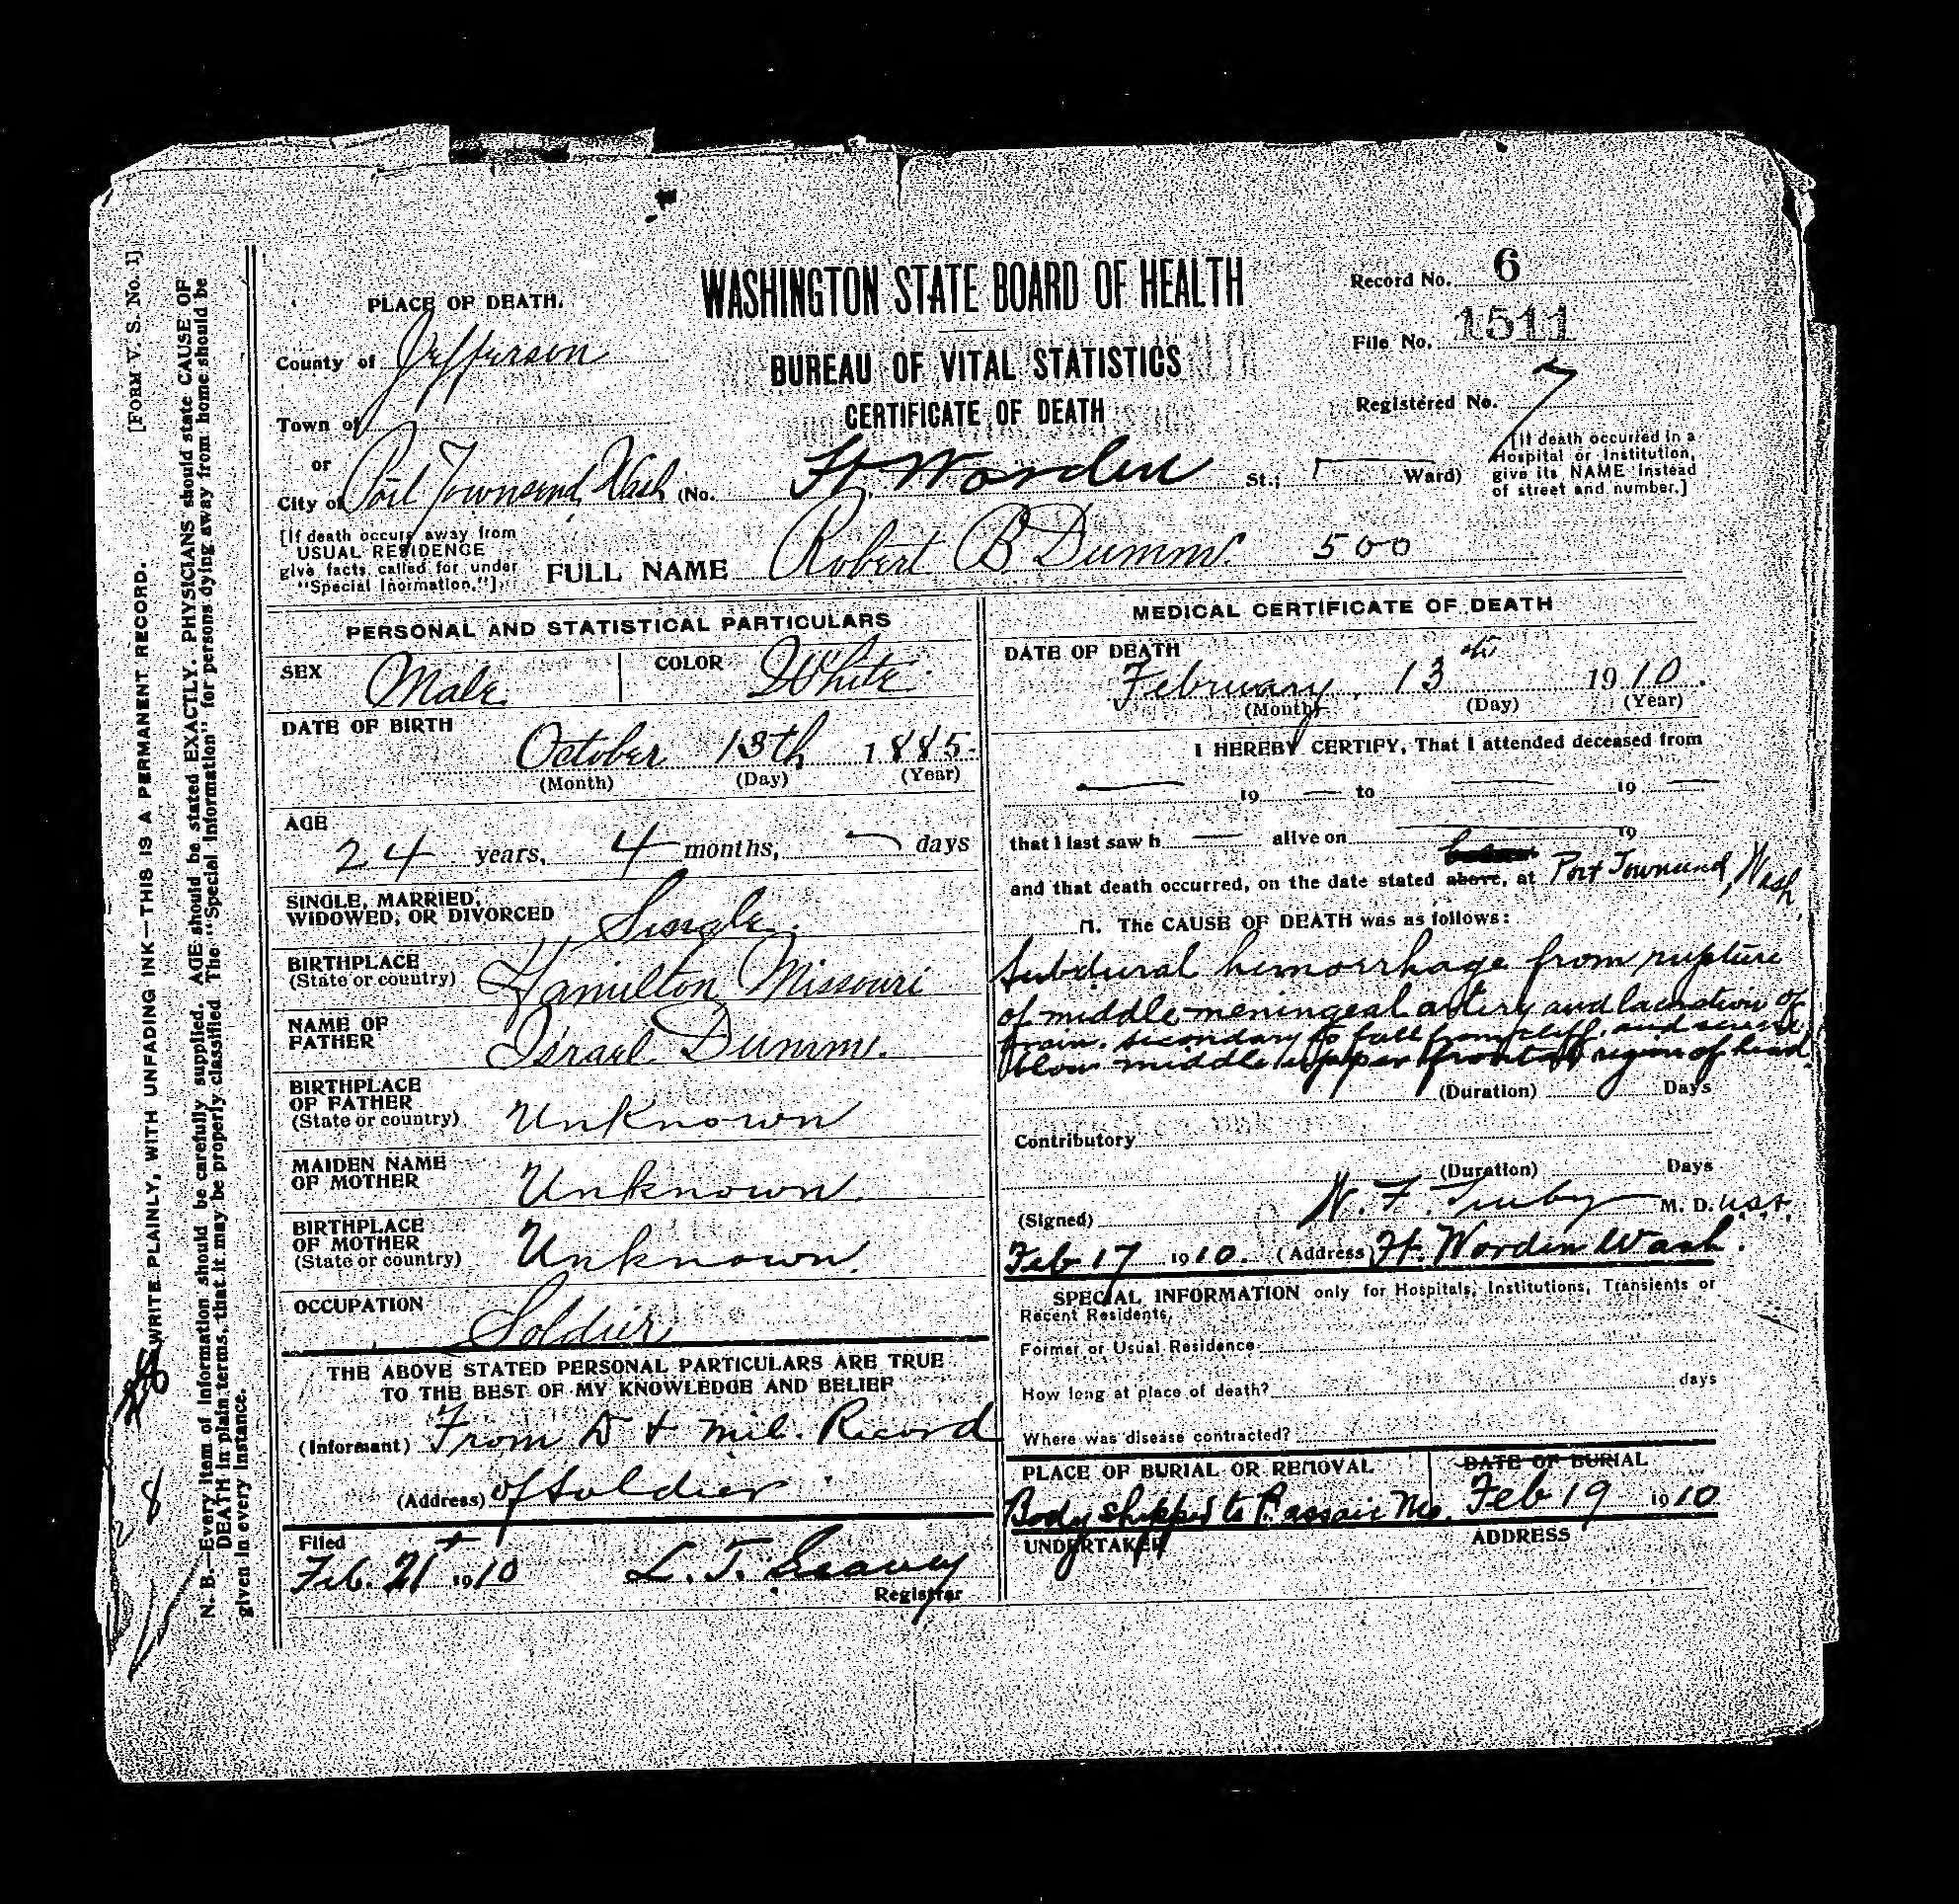 [FORM V. S. No. 1]
WRITE PLAINLY, WITH UNFADING INK—THIS IS A PERMANENT RECORD.
N. B.—Every item of information should be carefully supplied. AGE should be stated EXACTLY. PHYSICIANS should state CAUSE OF
DEATH in plain terms, that it may be properly classified The "Special Information" for persons dying away from home should be
given in every instance.
PLACE OF DEATH.
County of Jefferson
Town of
or
City of Port Townsend, Wash (No. Ft. Worden St.; Ward)
WASHINGTON STATE BOARD OF HEALTH
BUREAU OF VITAL STATISTICS
CERTIFICATE OF DEATH
Record No. 6
File No. 1511
Registered No. 7
[If death occurred in a
Hospital or Institution,
give its NAME instead
of street and number.]
[If death occurs away from
USUAL RESIDENCE
give facts called for under
"Special Inormation."]
FULL NAME Robert B Dumm. 500
PERSONAL AND STATISTICAL PARTICULARS
SEX Male COLOR White
DATE OF BIRTH
October 13th 1885
(Month) (Day) (Year)
AGE
24 years, 4 months, days
SINGLE, MARRIED,
WIDOWED, OR DIVORCED Single.
BIRTHPLACE
(State or country) Hamilton, Missouri
NAME OF
FATHER Israel Dumm.
BIRTHPLACE
OF FATHER
(State or country) Unknown
MAIDEN NAME
OF MOTHER Unknown.
BIRTHPLACE
OF MOTHER
(State or country) Unknown.
OCCUPATION Soldier
THE ABOVE STATED PERSONAL PARTICULARS ARE TRUE
TO THE BEST OF MY KNOWLEDGE AND BELIEF
(Informant) From D + mil. Record
(Address) of Soldier
Filed
Feb. 21 1910
Registrar
MEDICAL CERTIFICATE OF DEATH
DATE OF DEATH
February 13th 1910.
(Month) (Day) (Year)
I HEREBY CERTIFY, That I attended deceased from
— 19 — to — 19 —
that I last saw h — alive on — 19
and that death occurred, on the date stated above, at Port Townsend, Wash.
M. The CAUSE OF DEATH was as follows:
Subdural hemorrhage from rupture
of middle meningeal artery and laceration of
brain. secondary to fall from cliff. and severe
blow middle upper frontal region of head.
(Duration) Days
Contributory
(Duration) Days
(Signed) M. D. U.S.A.
Feb 17 1910. (Address) Ft. Worden Wash.
SPECIAL INFORMATION only for Hospitals, Institutions, Transients or
Recent Residents.
Former or Usual Residence
How long at place of death? days
Where was disease contracted?
PLACE OF BURIAL OR REMOVAL DATE OF BURIAL
Body shipped to Passaic Mo. Feb 19 1910
UNDERTAKER ADDRESS